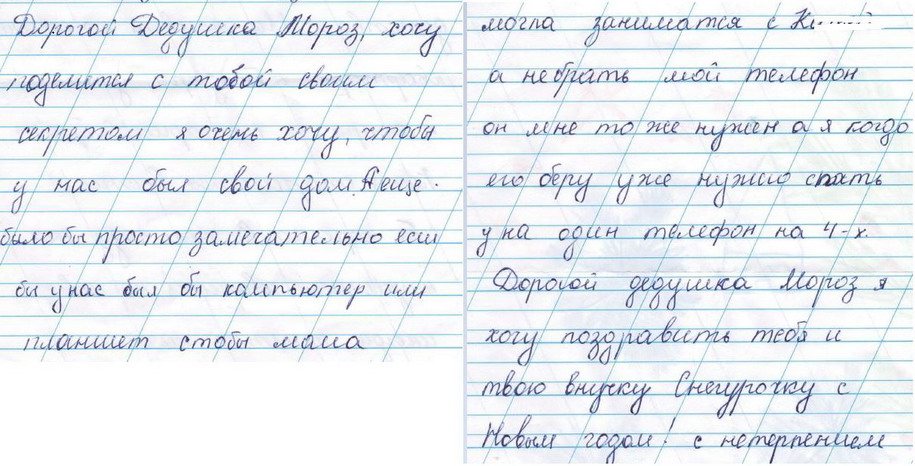 Дорогой Дедушка Мороз, хочу
поделится с тобой своим
секретом я очень хочу, чтобы
у нас был свой дом. А еще
было бы просто замечательно если
бы у нас был бы компьютер или
планшет стобы мама
могла заниматся с
а небрать мой телефон
он мне то же нужен а я когда
его беру уже нужно спать
у на один телефон на 4-х.
Дорогой дедушка Мороз я
хочу поздравить тебя и
твою внучку Снегурочку с
Новым годом! с нетерпением